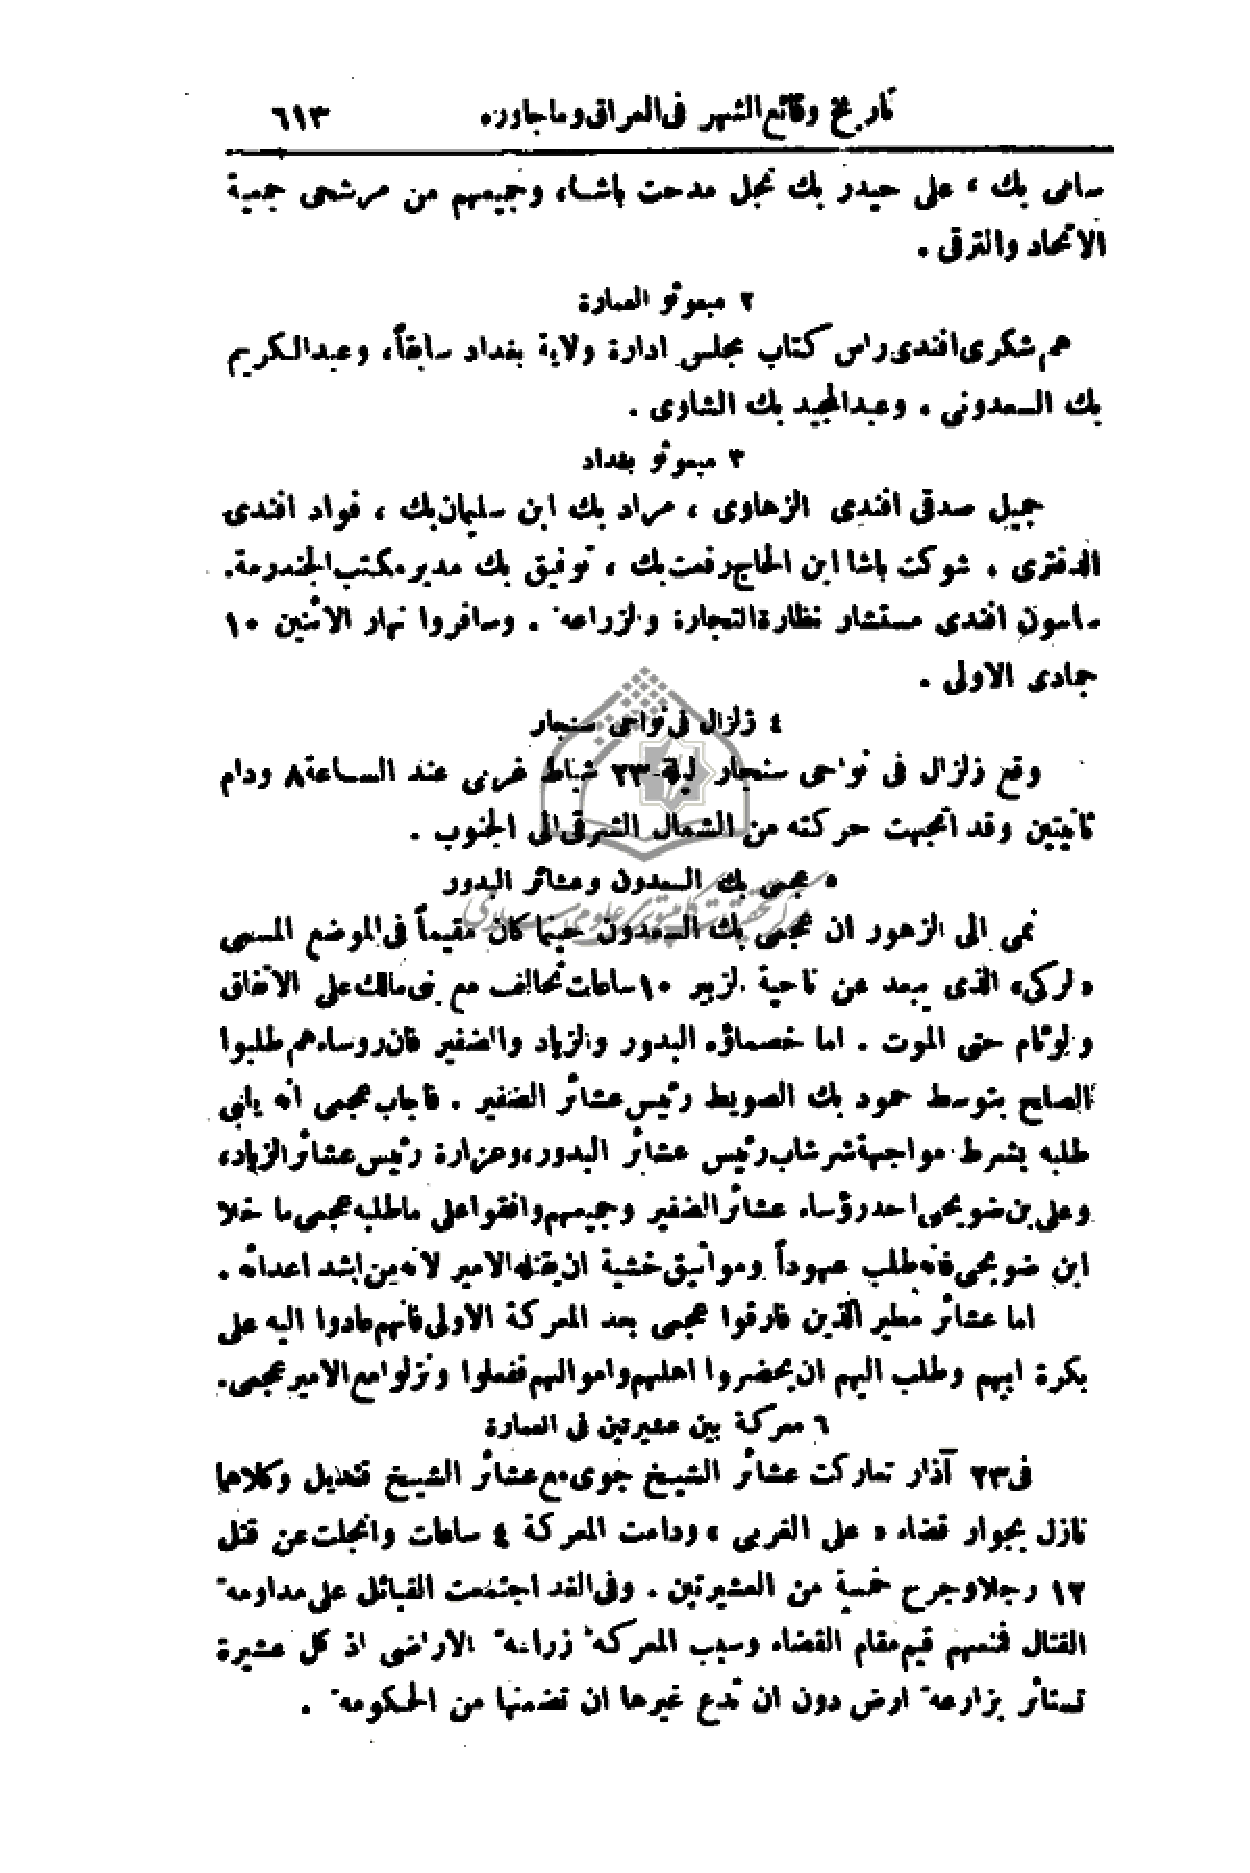 تاريخ وقائع الشهر في العراق وما جاوره ٦١٣
سامي بك ، علي حيدر بك نجل مدحت باشا، وجميعهم من مرشحي جمعية
الاتحاد والترقي .
٢ مبعوثو العمارة
هم شكري افندي راس كتاب مجلس ادارة ولاية بغداد سابقاً، وعبد الكريم
بك السعدوني . وعبد المجيد بك الشاوي .
٣ مبعوثو بغداد
جميل صدقي افندي الزهاوي ، مراد بك ابن سليمان بك ، فواد افندي
الدفتري . شوكت باشا ابن الحاج رفعت بك ، توفيق بك مدير مكتب الجندرمة.
ساسون افندي مستشار نظارة التجارة والزراعة . وسافروا نهار الاثنين ١٠
جمادى الاولى .
٤ زلزال في نواحي سنجار
وقع زلزال في نواحي سنجار ليلة ٢٣ شباط غربي عند الساعة ٨ ودام
ثانيتين وقد اتجهت حركته من الشمال الشرقي الى الجنوب .
٥ عجمي بك السعدون وعشائر البدور
نمي الى الزهور ان عجمي بك السعدون حينما كان مقيماً في الموضع المسمى
«لركي» الذي يبعد عن ناحية الزبير ١٠ ساعات تحالف مع بني مالك على الاتفاق
والوئام حتى الموت . اما خصماؤه البدور والزياد والضفير فان روساءهم طلبوا
الصلح بتوسط حمود بك الصويط رئيس عشائر الضفير . فاجاب عجمي انه يلبي
طلبه بشرط مواجهة شرشاب رئيس عشائر البدور، وعزارة رئيس عشائر الزياد،
وعلي بن ضويحي احد رؤساء عشائر الضفير وجميعهم وافقوا على ما طلبه عجمي ما خلا
ابن ضويحي فانه طلب عهوداً ومواثيق خشية ان يقتله الامير لانه من اشد اعدائه .
اما عشائر مطير الذين فارقوا عجمي بعد المعركة الاولى فانهم عادوا اليه على
بكرة ابيهم وطلب اليهم ان يحضروا اهلهم واموالهم ففعلوا ونزلوا مع الامير عجمي.
٦ معركة بين عشيرتين في العمارة
في ٢٣ آذار تعاركت عشائر الشيخ جوي مع عشائر الشيخ قنديل وكلاهما
نازل بجوار قضاء « علي الغربي » ودامت المعركة ٤ ساعات وانجلت عن قتل
١٢ رجلا وجرح خمسة من العشيرتين . وفي الغد اجتمعت القبائل على مداومة
القتال فمنعهم قيم مقام القضاء وسبب المعركة زراعة الاراضي اذ كل عشيرة
تستاثر بزارعة ارض دون ان تدع غيرها ان تضمنها من الحكومة .